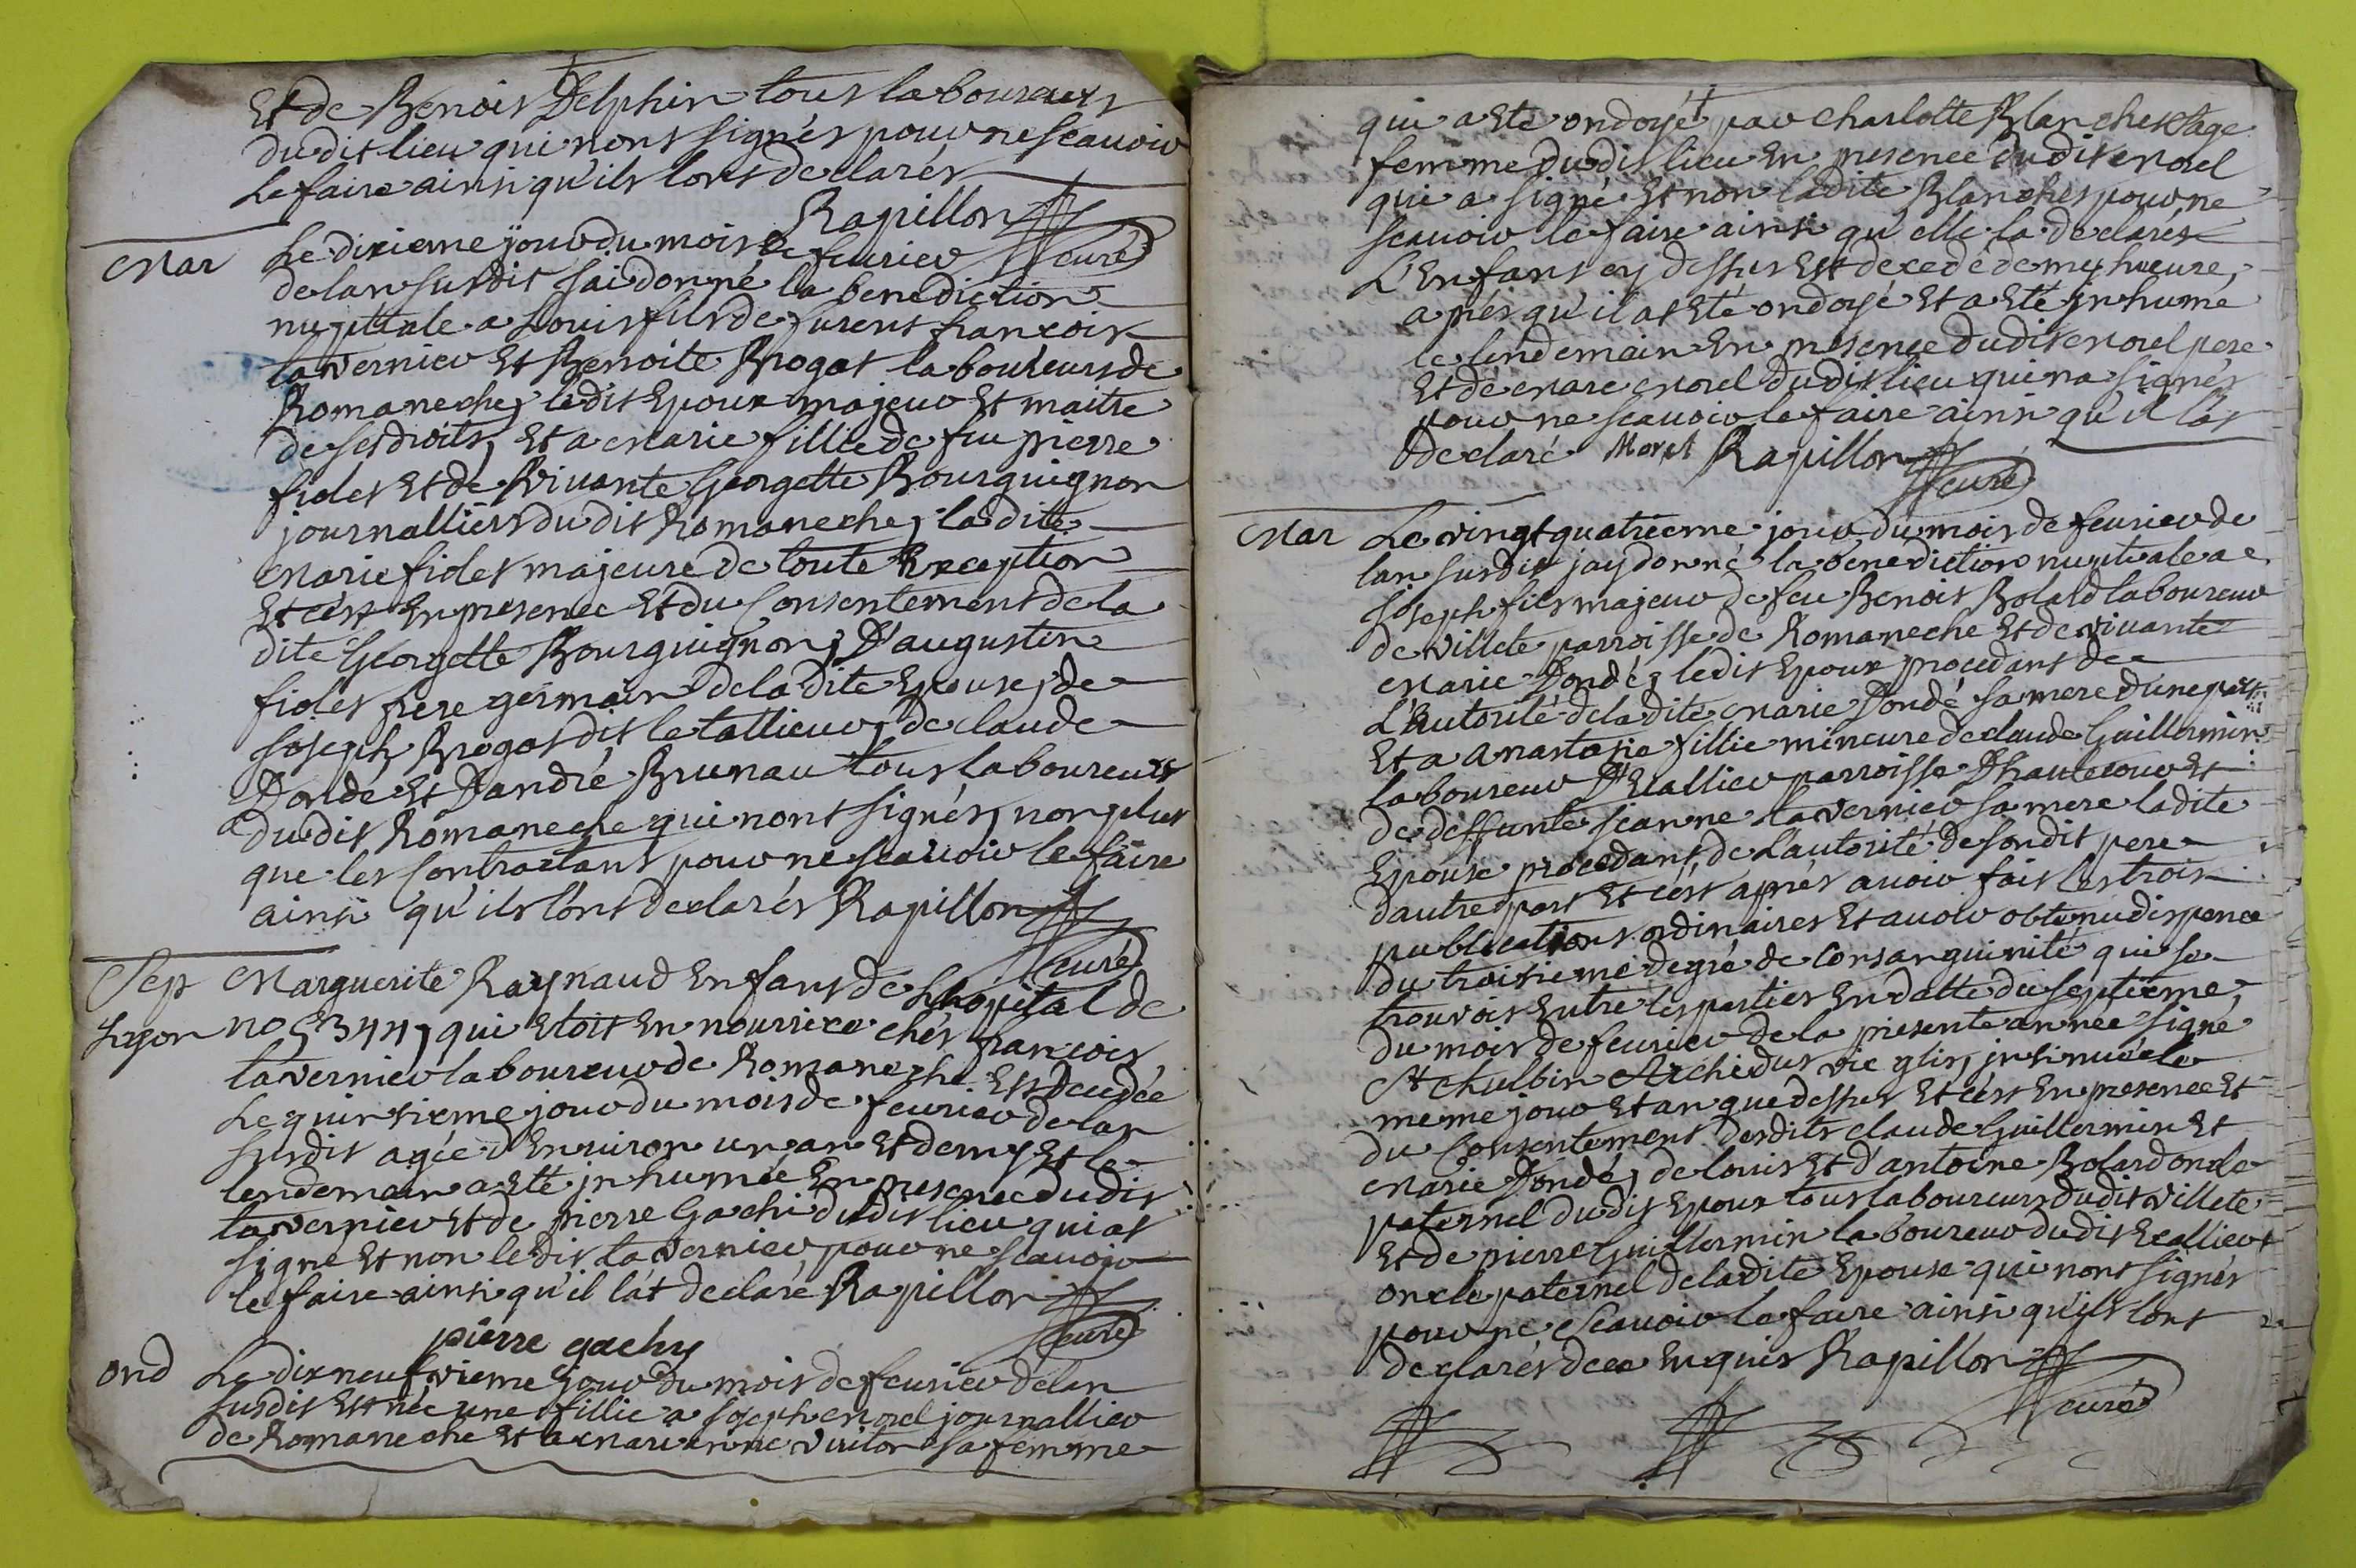 Et de Benois Delphin tous laboureurs
du dit lieu qui nont signés pour ne scauoir
Le faire ainsi qu'ils lont declarés
Rapillon
curé
Mar
Le dixieme jour du mois de feurier
de lan susdit jai donné la benediction
nuptiale a Louis fils de furent francois
tavernier Et Benoite Brogat laboureurs de
Romaneche, ledit Epoux majeur Et maitre
de ses droits, Et a Marie fillie de feu pierre
fidet Et de Vivante Georgette Bourguignon
journalliers du dit Romaneche, la dite
Marie fidet majeure de toute Exception
Et c'est En presence Et du Consentement de la
dite Georgette Bourguignon, D'augustin
fidet frere germain de la dite Epouse, de
Joseph Brogat dit le tallieur, de claude
Dondé Et Dandré Brunau tous laboureurs
du dit Romaneche qui nont signés, non plus
que les Contractans pour ne scauoir le faire
ainsi qu'ils lont declarés Rapillon
curé
Sep
Marguerite Raynaud Enfant de Lhopital de
Lyon no 5344, qui Etoit En nourrice chés francois
tavernier laboureur de Romaneche Est decedée
Le quinsieme jour du mois de feurier de lan
susdit agée d'Enuiron un an Et demy Et le
lendemain a Eté inhumée En presence du dit
tavernier Et de pierre Gachi dudit lieu qui at
signe Et non ledit tavernier pour ne scauoir
le faire ainsi qu'il lat declaré Rapillon
curé
pierre gachy
ond
Le dix neufvieme jour du mois de feurier de lan
susdit Est née une fillie a Joseph Morel journallier
de Romaneche Et a Marianne Vuiton sa femme
qui a Eté ondoyé par Charlotte Blanchet sage
femme du dit lieu En presence du dit Morel
qui a signé Et non ladite Blanchet pour ne
scauoir le faire ainsi qu'elle la declarés
L'Enfant cy dessus Est decedé demy heure,
aprés qu'il at Eté ondoyé Et a Eté inhumé
le lendemain En presence dudit Morel pere
Et de Marc Morel du dit lieu qui na signés
pour ne scauoir le faire ainsi qu'il lat
declaré Morel Rapillon
curé
Mar
Le vingt quatrieme jour du mois de feurier de
lan susdit jay donné la benediction nuptiale a
Joseph fils majeur de feu Benoit Bolard laboureur
de Villete parroisse de Romaneche Et de vivante
Marie Dondé, ledit Epoux procedant de
L'Autorité de la dite Marie Dondé sa mere dune part
Et a Anastasie fillie mineure de claude Guillermin
laboureur D'Ecallier parroisse Dhautecour Et
de deffunte jeanne tavernier sa mere ladite
Epouse procedant de L'autorité de son dit pere
dautre part Et c'est aprés auoir fait les trois
publications ordinaires Et auoir obtenu dispence
du troisieme degré de Consanguinité qui se
trouvoit Entre les parties En datte du septieme,
du mois de feurier de la presente année signé
Archidut vic glis, insinué le
meme jour Et an que dessus Et c'est En presence Et
du Consentement desdits claude Guillermin Et
Marie Dondé, de Louis Et d'antoine Bolard oncle
paternel du dit Epoux tous laboureurs du dit Villete
Et de pierre Guillermin laboureur du dit Ecallier
oncle paternel de la dite Epouse qui nont signés
pour ne scauoir le faire ainsi qu'ils lont
declarés de ce Enquis Rapillon
curé